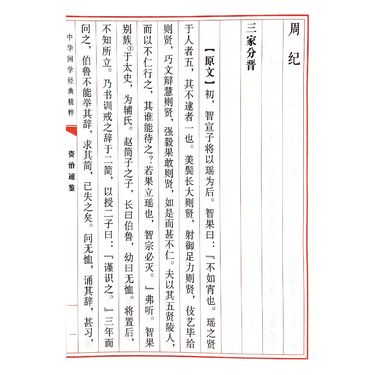 周纪
三家分晋
【原文】初，智宣子将以瑶为后。智果曰：“不如宵也。瑶之贤
于人者五，其不逮者一也。美鬓长大则贤，射御足力则贤，伎艺毕给
则贤，巧文辩慧则贤，强毅果敢则贤，如是而甚不仁。夫以其五贤陵人，
而以不仁行之，其谁能待之？若果立瑶也，智宗必灭。”弗听。智果
别族①于太史，为辅氏。赵简子之子，长曰伯鲁，幼曰无恤。将置后，
不知所立。乃书训戒之辞于二简，以授二子曰：“谨识之。”三年而
问之，伯鲁不能举其辞，求其简，已失之矣。问无恤，诵其辞，甚习，
中华国学经典精粹
资治通鉴
一